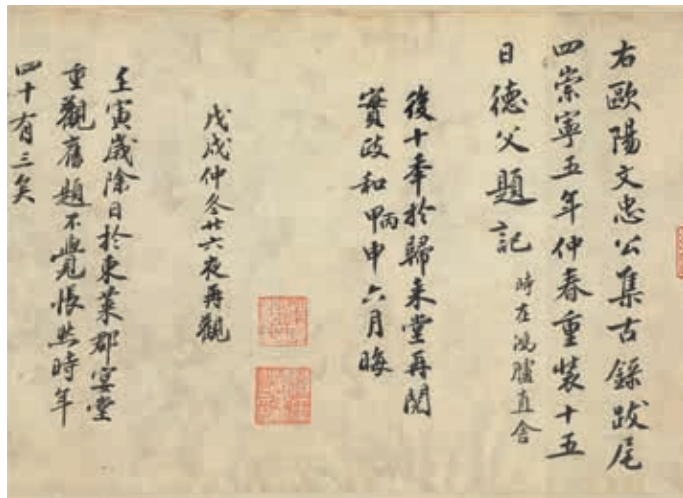 右歐陽文忠公集古錄跋尾
四崇寧五年仲春重裝十五
日德父題記 時在鴻臚直舍
後十秊於歸来堂再閱
實政和甲丙申六月晦
戊戌仲冬廿六夜再觀
壬寅歲除日於東萊郡宴堂
重觀舊題不覺悵然時年
四十有三矣